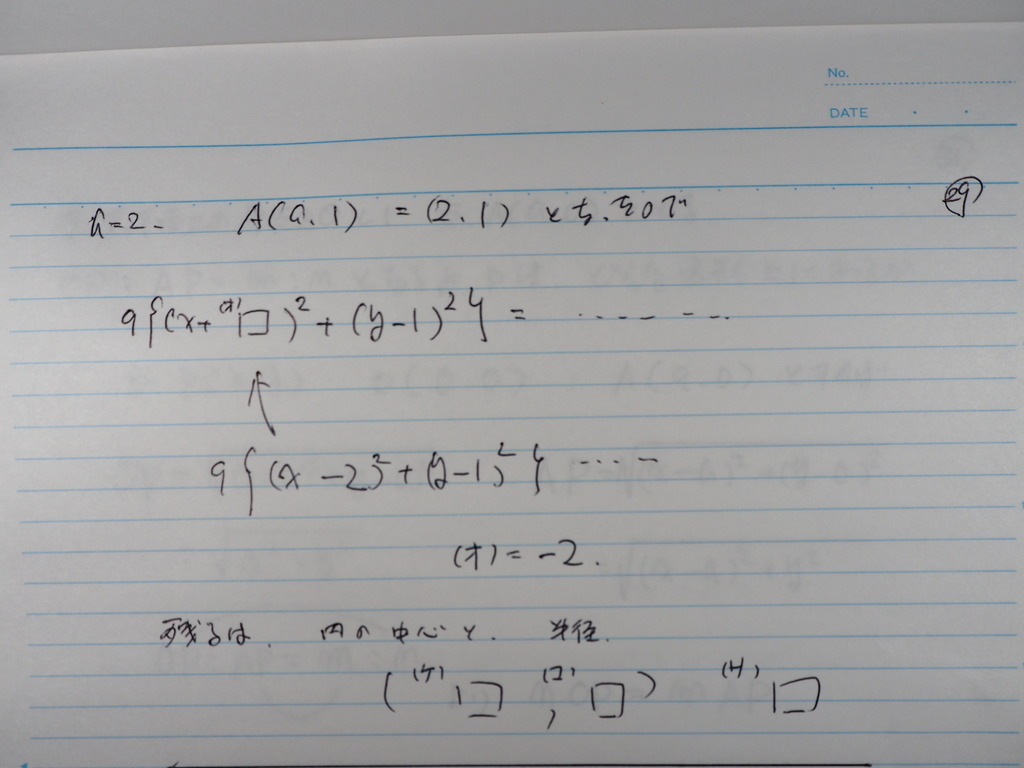 No.
DATE
㉙
a=2. A(a.1) = (2.1) とち.るので
9{(x+(オ)□)²+(y-1)²} = ‥‥‥
9{(x-2)²+(y-1)²} ‥‥
(オ)=-2.
残るは. 円の中心と. 半径.
((ケ)□, (コ)□) (サ)□